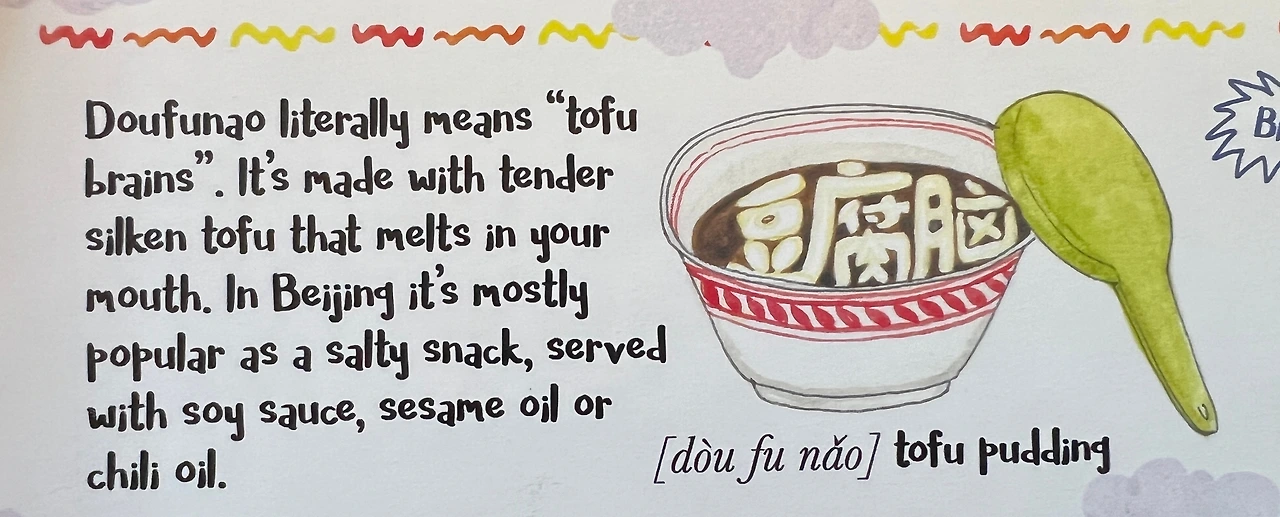 Doufunao literally means “tofu
brains”. It's made with tender
silken tofu that melts in your
mouth. In Beijing it's mostly
popular as a salty snack, served
with soy sauce, sesame oil or
chili oil.
豆腐脑
[dòu fu nǎo] tofu pudding